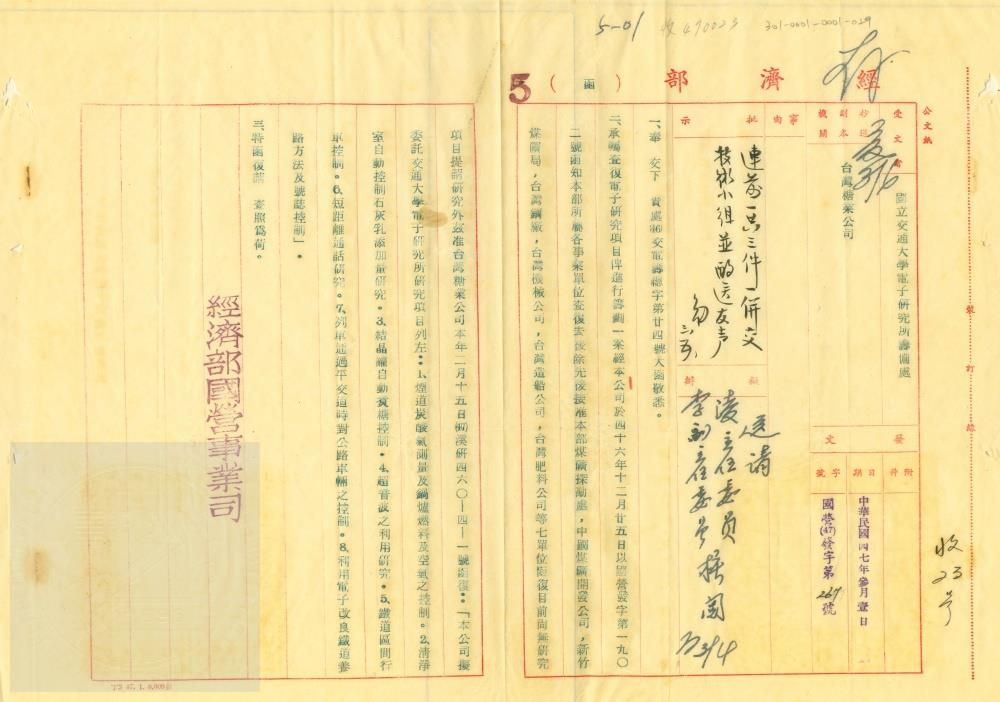 5-01 收470023 301-0001-0001-029
經濟部(函)
5
公文紙
裝訂線
受文者
國立交通大學電子研究所籌備處
抄送副本機關
台灣糖業公司
事由
批示
連前共三件一併交
技術小組並酌送友聲
擬辦
送請
凌主任委員
李副主任委員 核閱
3/4
發文
附件
日期
中華民國四七年參月壹日
字號
國營(47)發字第267號
收23号
一、奉 交下 貴處(46)交電籌總字第廿四號大函敬悉。
二、承囑查復電子研究項目俾進行籌劃一案經本公司於四十六年十二月廿五日以國營發字第一九〇
二號函知本部所屬各事業單位查復去後除先後接准本部煤礦探勘處,中國煤礦開發公司,新竹
煤礦局,台灣鋼廠,台灣機械公司,台灣造船公司,台灣肥料公司等七單位函復目前尚無研究
項目提請研究外茲准台灣糖業公司本年二月十五日(47)溪研四六〇—四—一號函復:「本公司擬
委託交通大學電子研究所研究項目列左:1、煙道炭酸氣測量及鍋爐燃料及空氣之控制。2、清淨
室自動控制石灰乳添加量研究。3、結晶罐自動煮糖控制。4、超音波之利用研究。5、鐵道區間行
車控制。6、短距離通話研究。7、列車通過平交道時對公路車輛之控制。8、利用電子改良鐵道養
路方法及號誌控制」。
三、特函復請 查照為荷。
經濟部國營事業司